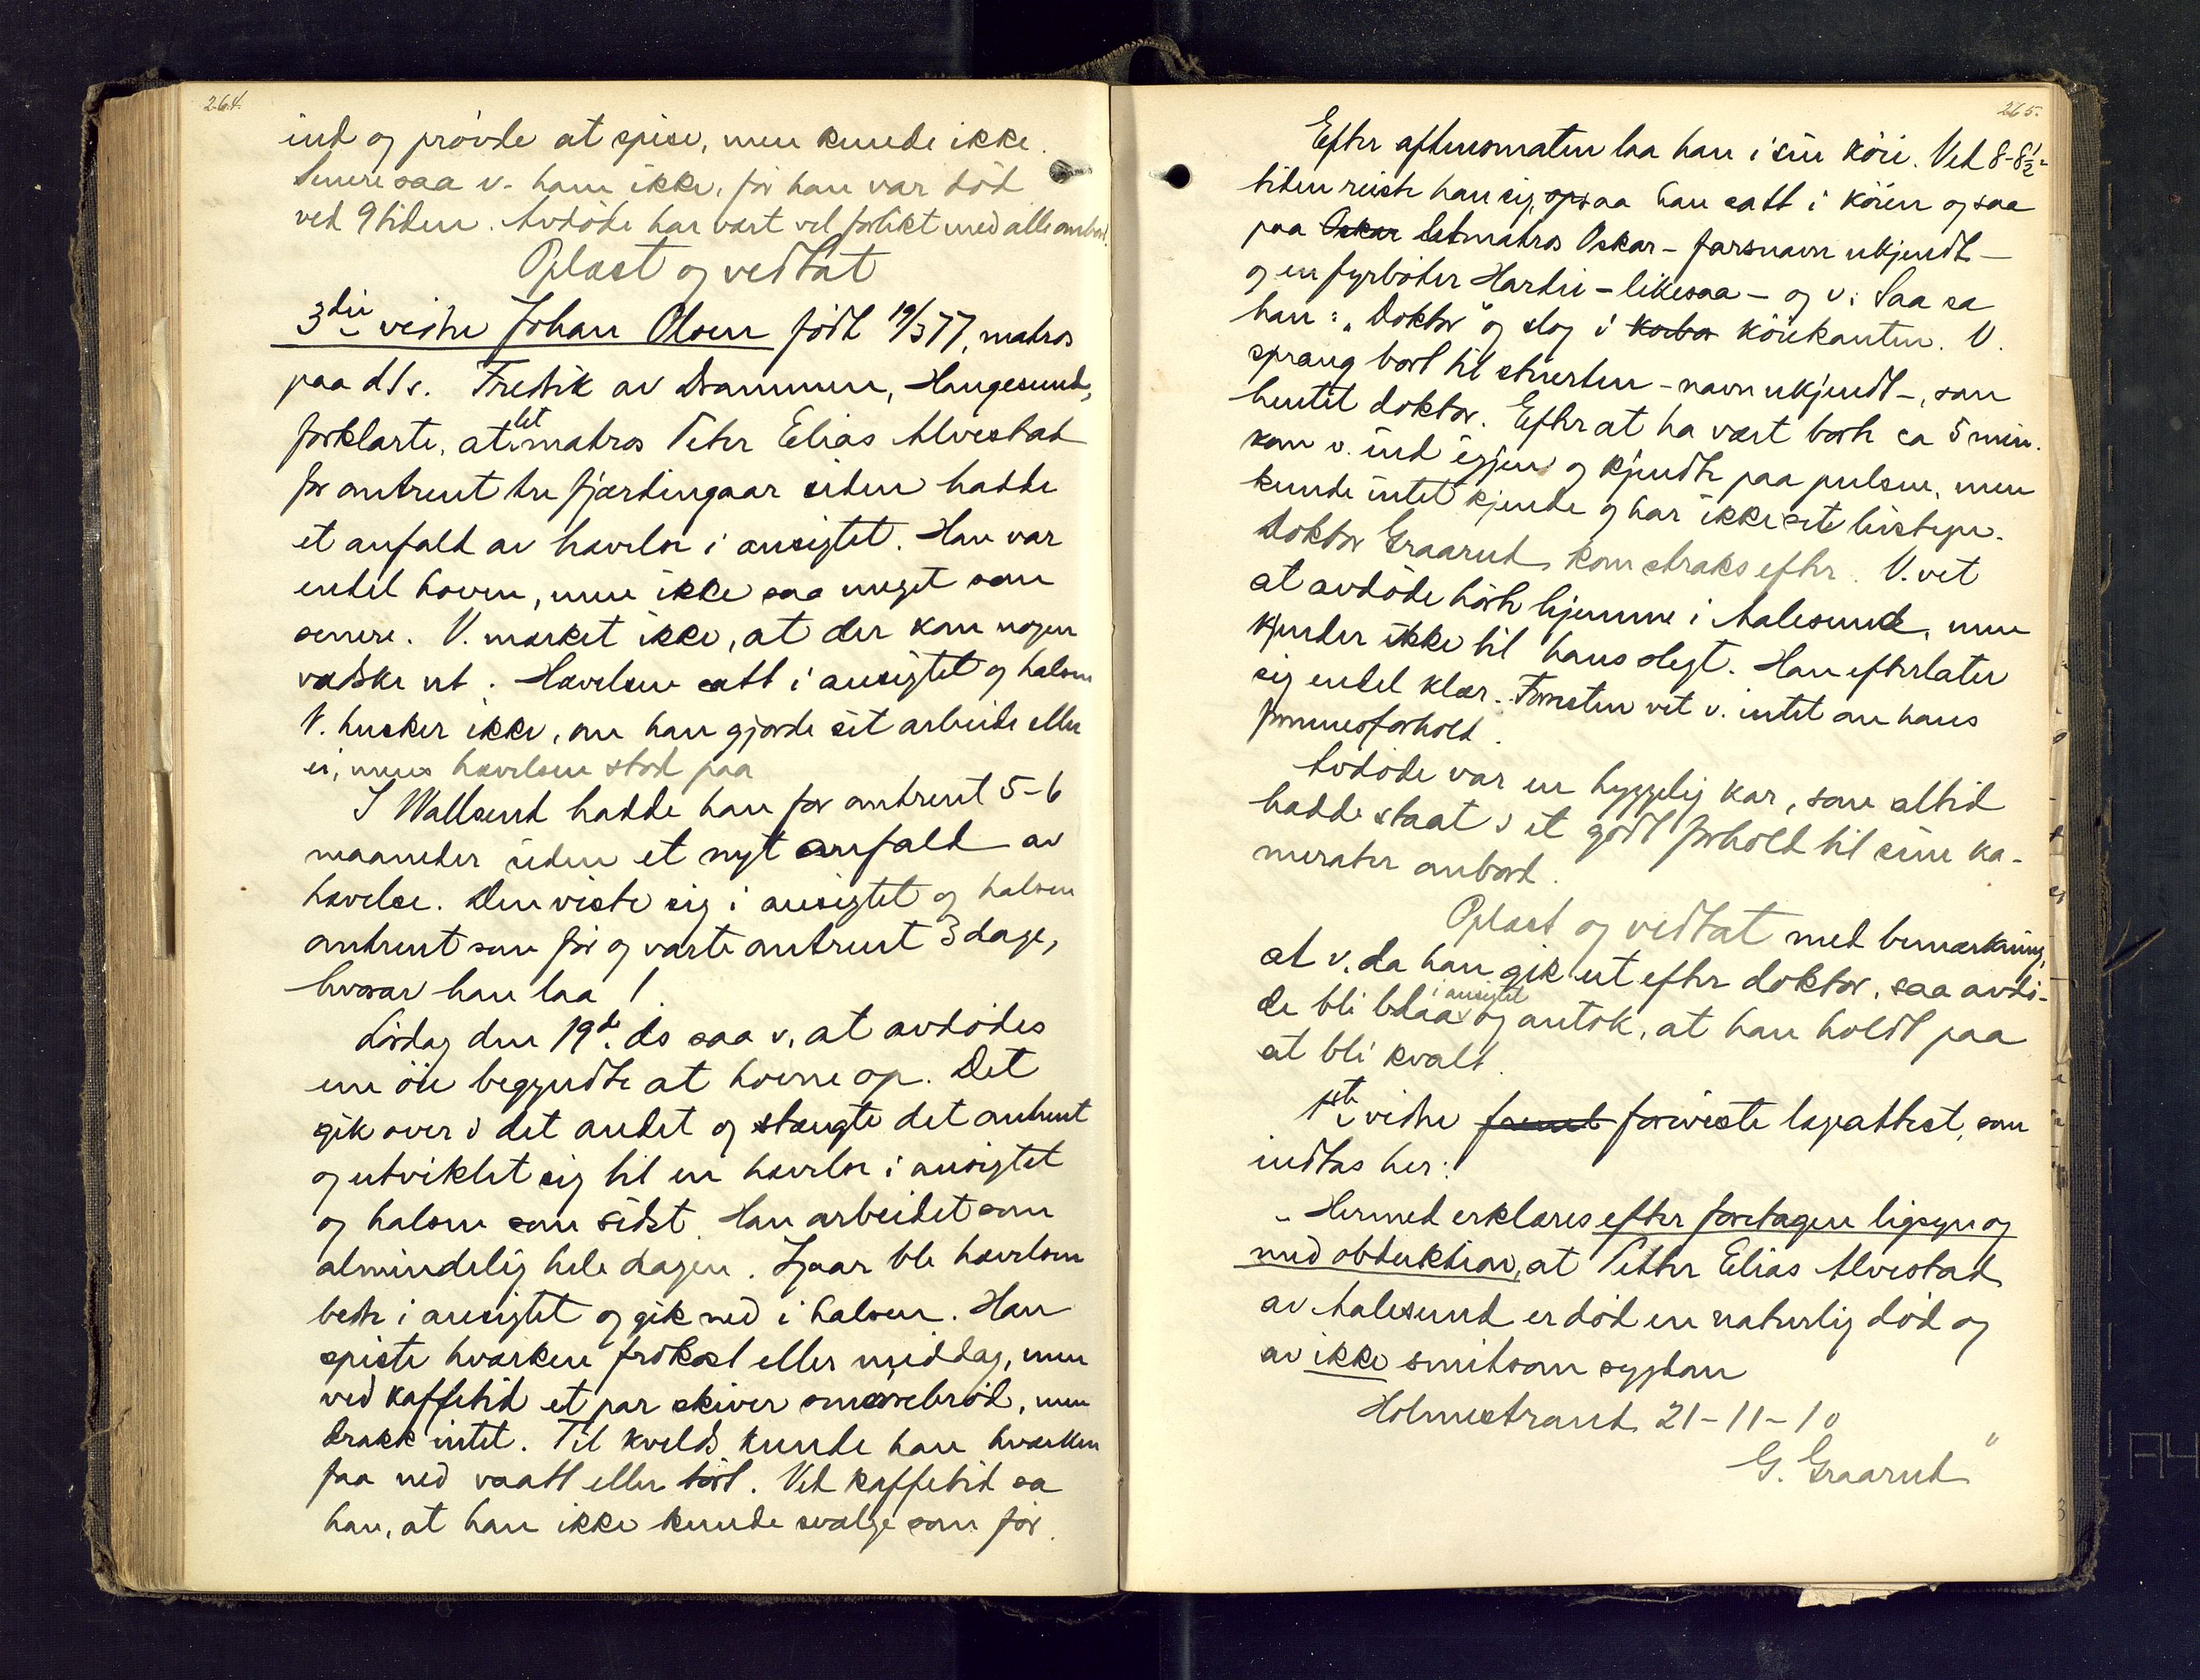 264.
ind og prövde at spise, men kunde ikke.
Senere saa v. ham ikke, för han var död
ved 9 tiden. Avdöde har vært vel forlikt med alle ombord.
Oplæst og vedtat
3die vidne Johan Olsen födt 19/3 77, matros
paa d/s. Fredrik av Drammen, Haugesund,
forklarte, at letmatros Peter Elias Alvestad
for omtrent tre fjerdingaar siden hadde
et anfald av hævelse i ansigtet. Han var
endel hoven, men ikke saa meget som
senere. V. merket ikke, at der kom nogen
vædske ut. Hævelsen satt i ansigtet og halsen
V. husker ikke, om han gjorde sit arbeide eller
ei, mens hævelsen stod paa
I Wallsend hadde han for omtrent 5-6
maaneder siden et nyt anfald av
hævelse. Den viste sig i ansigtet og halsen
omtrent som för og varte omtrent 3 dage,
hvorav han laa 1.
Lördag den 19de ds saa v. at avdödes
ene öie begyndte at hovne op. Det
gik over i det andet og stængte det omtrent
og utviklet sig til en hævelse i ansigtet
og halsen som sidst. Han arbeidet som
almindelig hele dagen. Igaar ble hævelsen
bedre i ansigtet og gik ned i halsen. Han
spiste hverken frökost eller middag, men
ved kaffetid et par skiver smörrebröd, men
drakk intet. Til kvelds kunde han hverken
faa ned vaatt eller tört. Ved kaffetid sa
han, at han ikke kunde svælge som för.
265.
Efter aftensmaten laa han i sin köie. Ved 8-8½-
tiden reiste han sig op saa han satt i köien og saa
paa Oskar letmatros Oskar - farsnavn ukjendt -
og en fyrböter - likesaa - og v. Saa sa
han: "Doktor" og slog i köiekanten. V.
sprang bort til stuerten - navn ukjendt -, som
hentet doktor. Efter at ha vært borte ca 5 min.
kom v. ind igjen og kjendte paa pulsen, men
kunde intet kjende og har ikke sete livstegn.
Doktor Graarud kom straks efter. V. vet
at avdöde hörte hjemme i Aalesund, men
kjender ikke til hans slegt. Han efterlater
sig endel klær. Forresten vet v. intet om hans
formuesforhold.
Avdöde var en hyggelig kar, som altid
hadde staat i et godt forhold til sine ka-
merater ombord.
Oplæst og vedtat med bemerkning,
at v. da han gik ut efter doktor, saa avdö-
de bli blaa i ansigtet og antok, at han holdt paa
at bli kvalt.
1ste vidne foreviste legeattest, som
indtas her:
"Hermed erklæres efter foretagen ligsyn og
med obduktion, at Petter Elias Alvestad
av Aalesund er död en naturlig död og
av ikke smitsom sygdom
Holmestrand 21-11-10
G. Graarud"